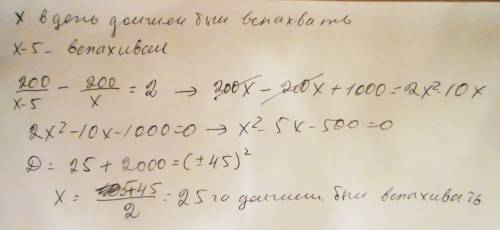 x в день должен был вспахвать
x-5 - вспахивал
200/(x-5) - 200/x = 2 → 200x - 200x + 1000 = 2x² - 10x
2x² - 10x - 1000 = 0 → x² - 5x - 500 = 0
D = 25 + 2000 = (±45)²
X = 5+45/2 = 25 га должен был вспахивать